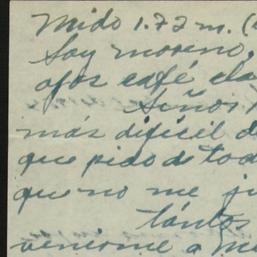 Mido 1.72 m. (
Soy moreno,
ojos café cla
Señor
más difícil d
que pido de tod
que no me ju
tántos
venirme a Mé